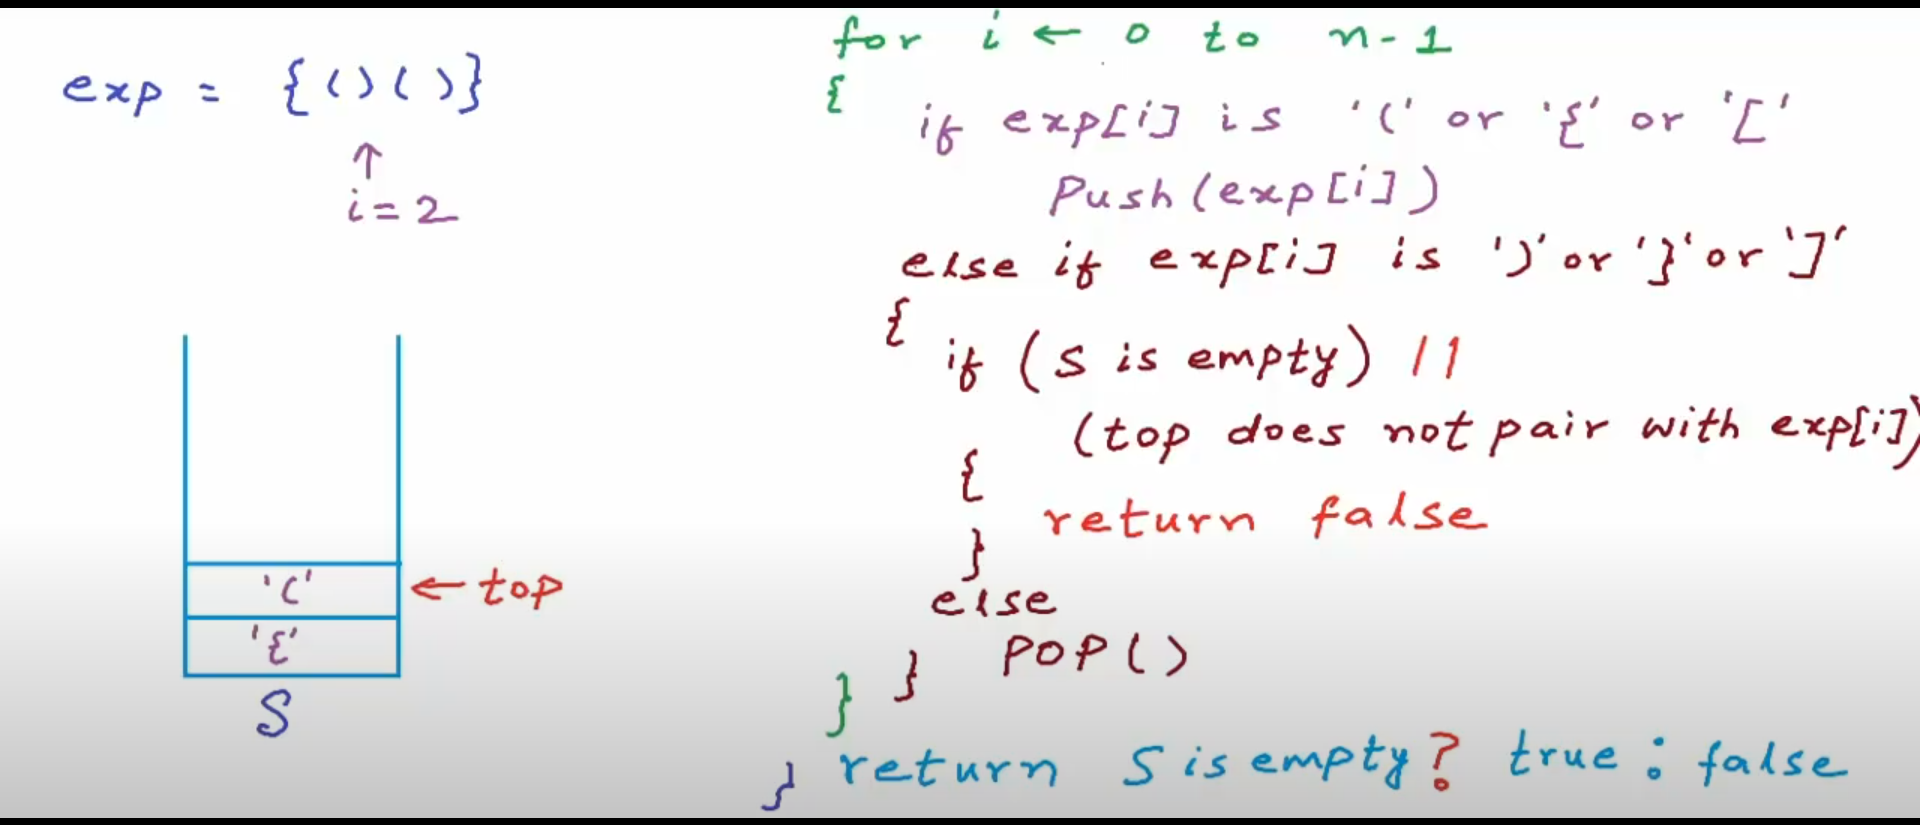 exp = {()()}
↑
i=2
'('
← top
'{'
S
for i ← 0 to n-1
{
if exp[i] is '(' or '{' or '['
Push(exp[i])
else if exp[i] is ')' or '}' or ']'
{
if (S is empty) ||
(top does not pair with exp[i])
{
return false
}
else
POP()
}
}
return S is empty? true : false
}